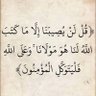 ﴿قُل لَّن يُصِيبَنَا إِلَّا مَا كَتَبَ
اللَّهُ لَنَا هُوَ مَوْلَانَا ۚ وَعَلَى اللَّهِ
فَلْيَتَوَكَّلِ الْمُؤْمِنُونَ﴾